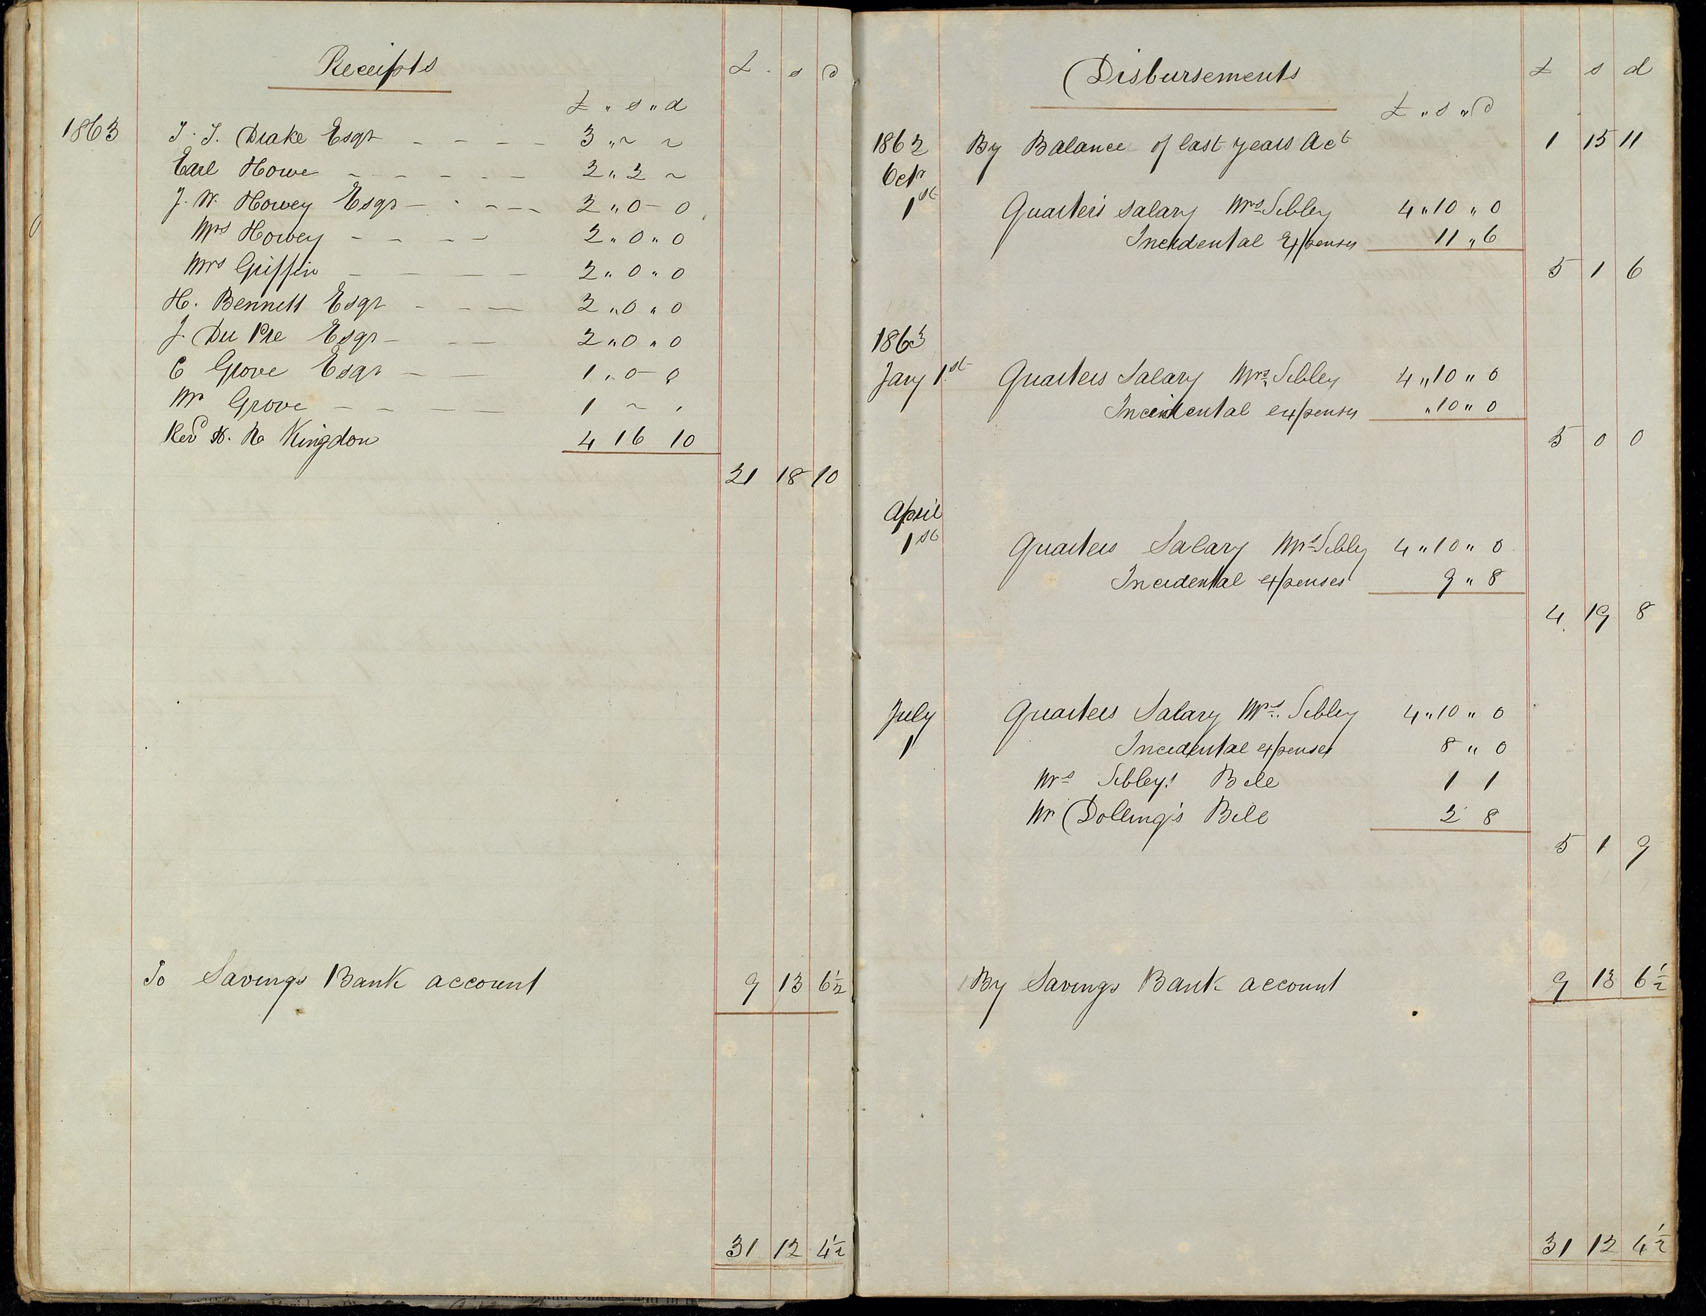 Receipts
£ . s d
£ " s " d
1863 T. T. Drake Esqr - - - - 3 " ~ ~
Earl Howe - - - - - - 2 " 2 ~
J. W. Howey Esqr - - - - 2 " 0 - 0
Mrs Howey - - - - 2 " 0 " 0
Mrs Griffin - - - - - 2 " 0 " 0
H. Bennett Esqr - - - 2 " 0 " 0
J. Du Pre Esqr - - - 2 " 0 " 0
C Grove Esqr - - 1 " 0 - 0
Mr Grove - - - - - 1 ~ "
Revd H. N Kingdon 4 16 10
21 18 10
To Savings Bank account 9 13 6½
31 12 4½
Disbursements
£ s d
£ " s " d
1862 By Balance of last years Act 1 15 11
Octr
1st Quarter's salary Mrs Sibley 4 " 10 " 0
Incidental Expenses 11 " 6
5 1 6
1863
Jany 1st Quarters Salary Mrs Sibley 4 " 10 " 0
Incidental expenses " 10 " 0
5 0 0
April
1st Quarters Salary Mrs Sibley 4 " 10 " 0
Incidental expenses 9 " 8
4 19 8
July Quarters Salary Mrs Sibley 4 " 10 " 0
1 Incidental expenses 8 " 0
Mrs Sibley's Bill 1 1
Mr Dolling's Bill 2 8
5 1 9
By Savings Bank account 9 13 6½
31 12 4½